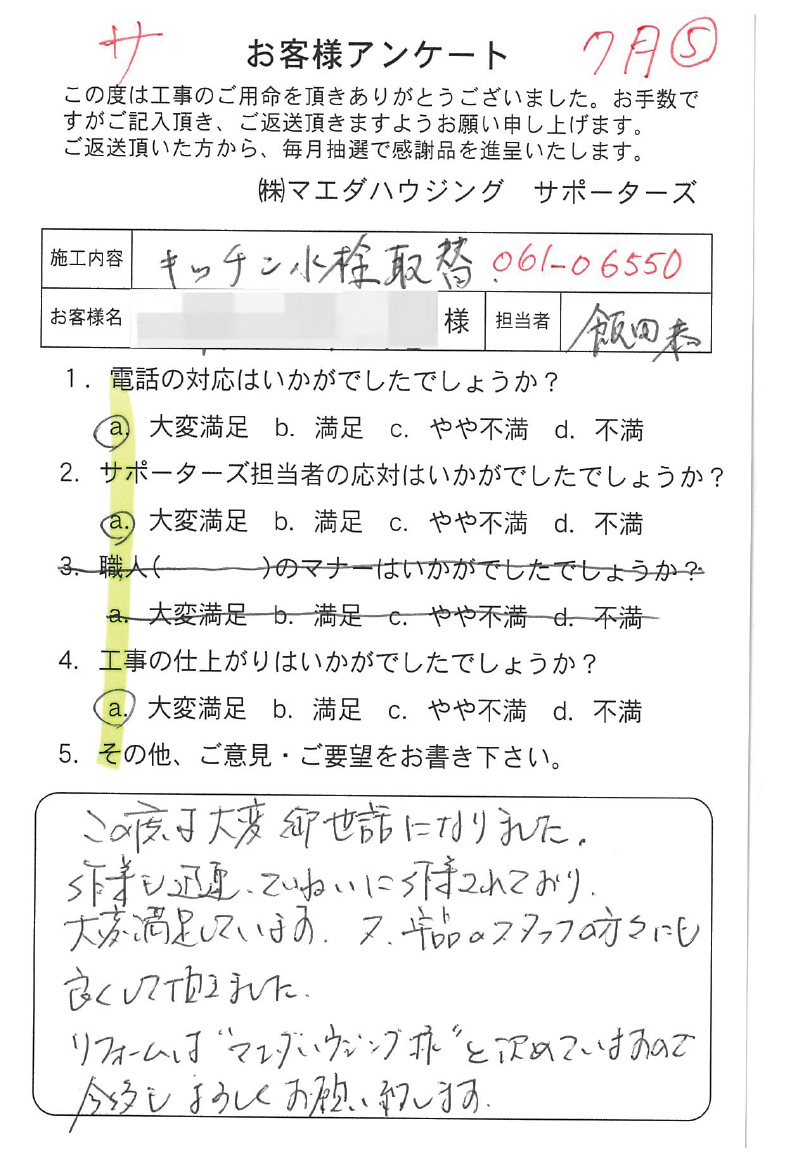 サ
7月⑤
お客様アンケート
この度は工事のご用命を頂きありがとうございました。お手数で
すがご記入頂き、ご返送頂きますようお願い申し上げます。
ご返送頂いた方から、毎月抽選で感謝品を進呈いたします。
㈱マエダハウジング サポーターズ
施工内容 キッチン水栓取替 061-06550
お客様名 様 担当者 飯田恭
1. 電話の対応はいかがでしたでしょうか？
a. 大変満足 b. 満足 c. やや不満 d. 不満
2. サポーターズ担当者の応対はいかがでしたでしょうか？
a. 大変満足 b. 満足 c. やや不満 d. 不満
3. 職人( )のマナーはいかがでしたでしょうか？
a. 大変満足 b. 満足 c. やや不満 d. 不満
4. 工事の仕上がりはいかがでしたでしょうか？
a. 大変満足 b. 満足 c. やや不満 d. 不満
5. その他、ご意見・ご要望をお書き下さい。
この度は大変御世話になりました。
作業も迅速、ていねいに作業されており、
大変満足しています。又、のスタッフの方々にも
良くして頂きました。
リフォームは"マエダハウジング様"と決めていますので
今後もよろしくお願い致します。